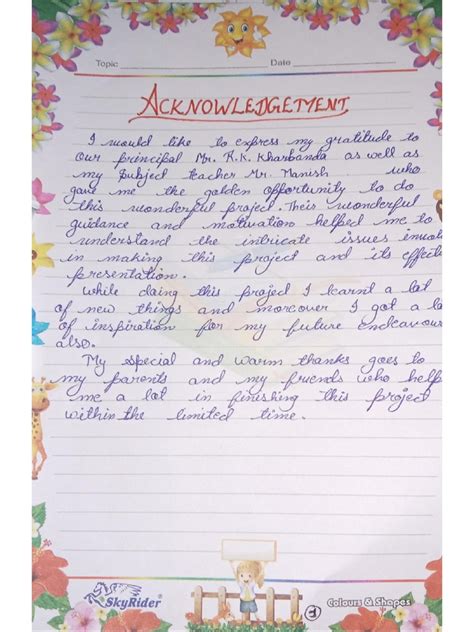 Topic Date
ACKNOWLEDGEMENT
I would like to express my gratitude to
our principal Mr. R.K. Kharbanda as well as
my subject teacher Mr. Manish who
gave me the golden opportunity to do
this wonderful project. Their wonderful
guidance and motivation helped me to
understand the intricate issues involv
in making this project and its effecti
presentation.
While doing this project I learnt a lot
of new things and moreover I got a lo
of inspiration for my future endeavous
also.
My special and warm thanks goes to
my parents and my friends who help
me a lot in finishing this project
within the limited time.
SkyRider
Colours & Shapes